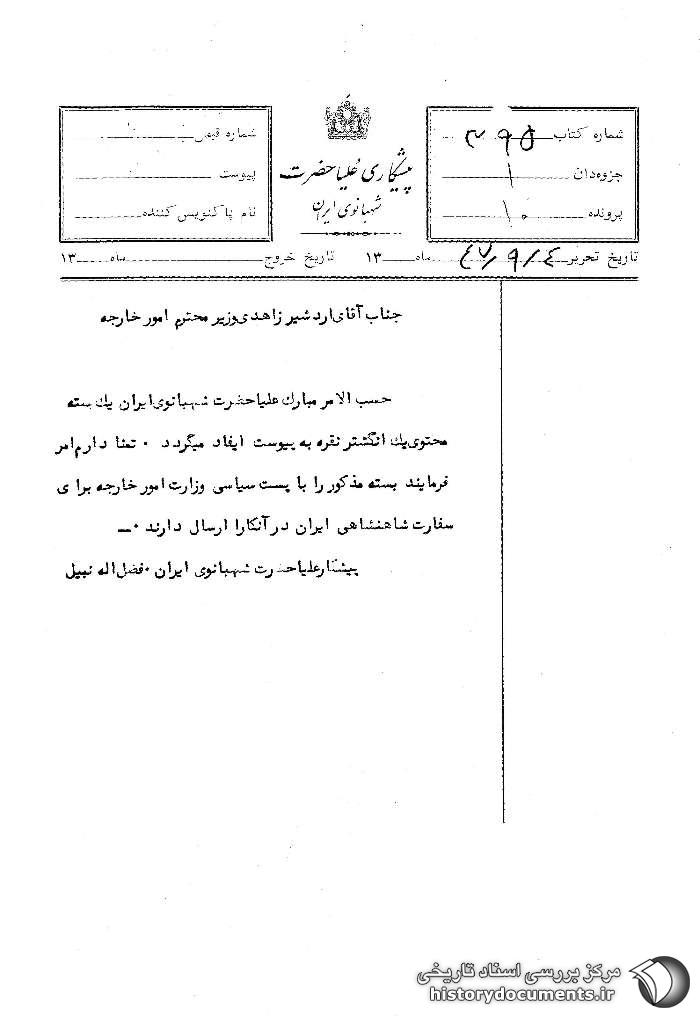 شماره کتاب ۳۹۵
جزوه‌دان ۱
پرونده ۱۰
پیشکاری علیا حضرت
شهبانوی ایران
شماره قبض
پیوست
نام پاکنویس کننده
تاریخ تحریر ۴۷/۹/۴ ماه ۱۳ تاریخ خروج ماه ۱۳
جناب آقای اردشیر زاهدی وزیر محترم امور خارجه
حسب الامر مبارک علیاحضرت شهبانوی ایران یک بسته
محتوی یک انگشتر نقره به پیوست ایفاد میگردد ۰ تمنا دارم امر
فرمایند بسته مذکور را با پست سیاسی وزارت امور خارجه برای
سفارت شاهنشاهی ایران در آنکارا ارسال دارند ۰ــ
پیشکار علیاحضرت شهبانوی ایران ۰ فضل اله نبیل
مرکز بررسی اسناد تاریخی
historydocuments.ir